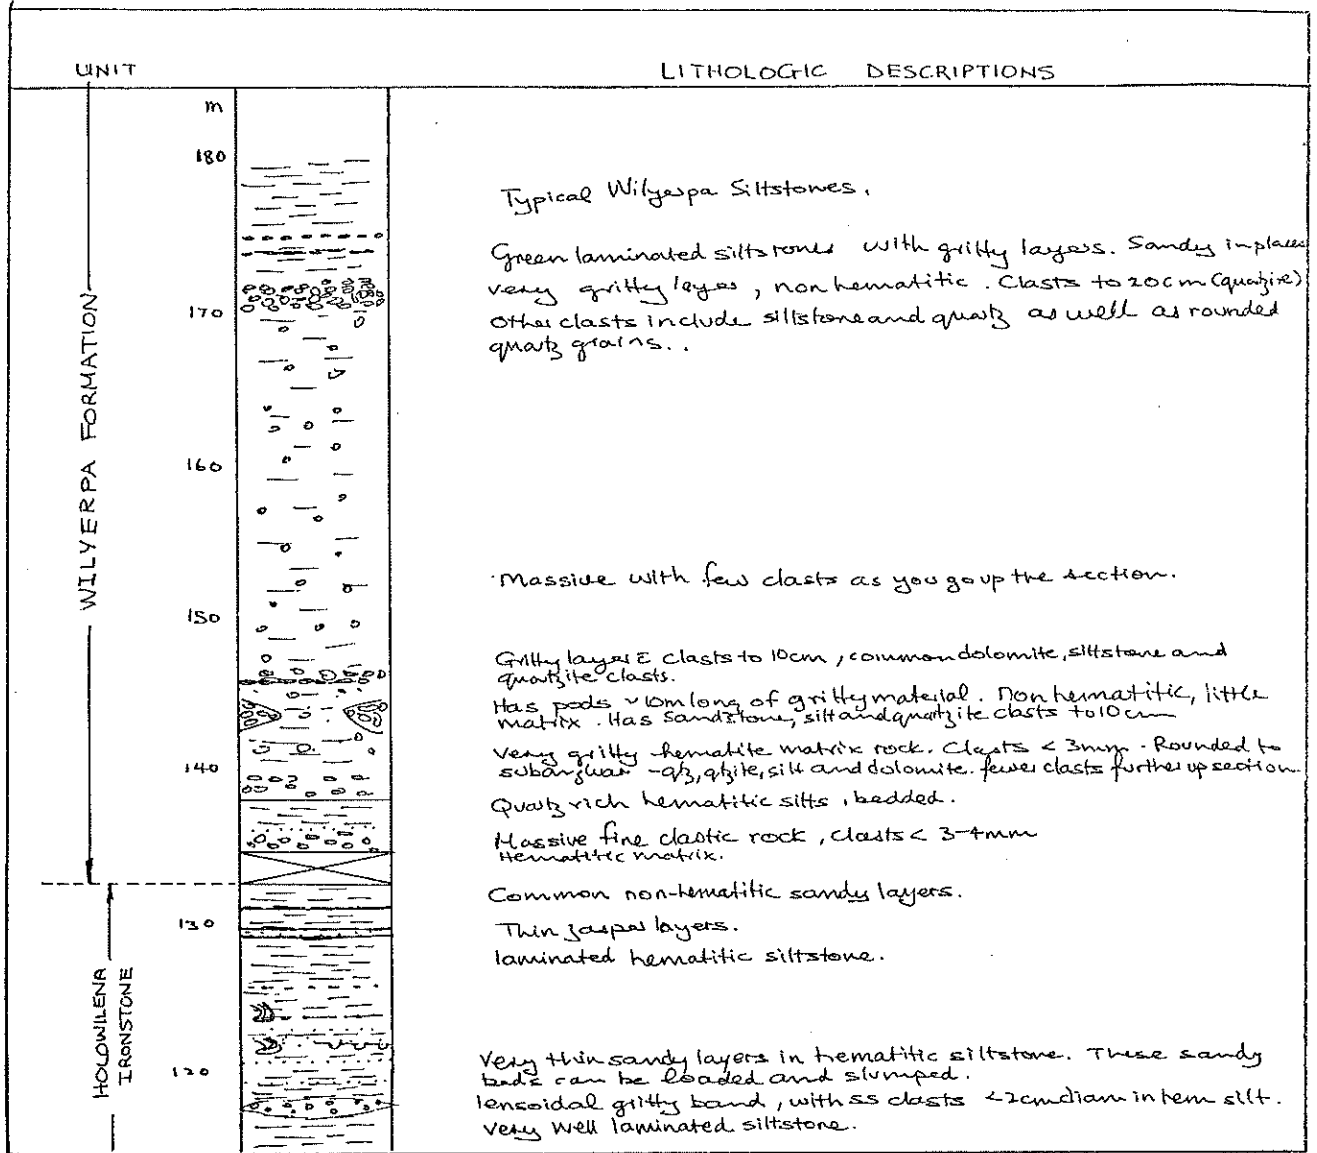 UNIT
LITHOLOGIC DESCRIPTIONS
m
180
170
160
150
140
130
120
WILYERPA FORMATION
HOLOWILENA
IRONSTONE
Typical Wilyerpa Siltstones.
Green laminated siltstones with gritty layers. Sandy in places
very gritty layer, non hematitic. Clasts to 20cm (quartzite)
Other clasts include siltstone and quartz as well as rounded
quartz grains..
Massive with few clasts as you go up the section.
Gritty layer c̄ clasts to 10cm, common dolomite, siltstone and
quartzite clasts.
Has pods ~10m long of gritty material. Non hematitic, little
matrix. Has Sandstone, silt and quartzite clasts to 10cm
Very gritty hematite matrix rock. Clasts < 3mm. Rounded to
subangular - qtz, qtzite, silt and dolomite. fewer clasts further up section.
Quartz rich hematitic silts, bedded.
Massive fine clastic rock, clasts < 3-4mm
Hematitic matrix.
Common non-hematitic sandy layers.
Thin jasper layers.
laminated hematitic siltstone.
Very thin sandy layers in hematitic siltstone. These sandy
beds can be loaded and slumped.
lensoidal gritty band, with ss clasts <2cm diam in hem silt.
Very well laminated siltstone.